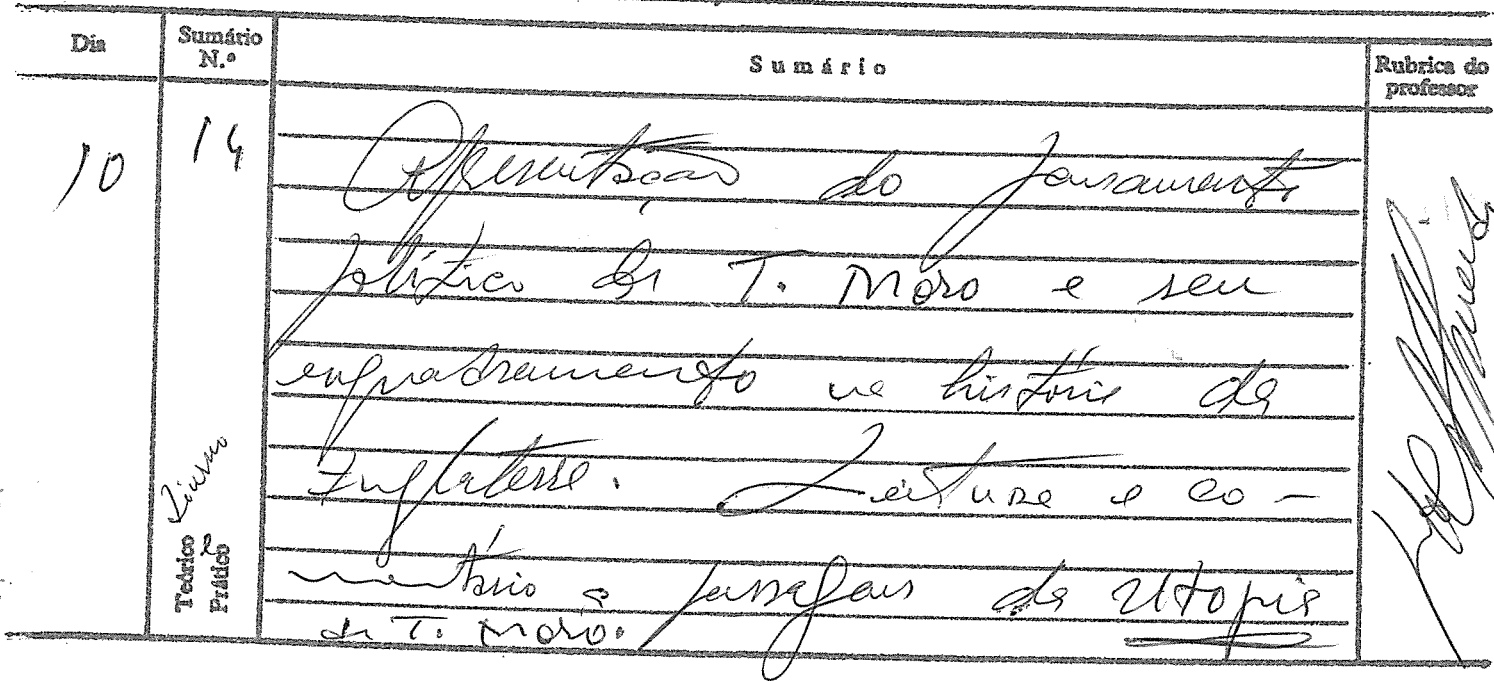 Dia
Sumário
N.º
Sumário
Rubrica do
professor
10
14
Apresentação do pensamento
político de T. Moro e seu
enquadramento na história da
Inglaterra. Leitura e co-
mentário a passagens da Utopia
de T. Moro.
Teórico e
Prático
Diurno